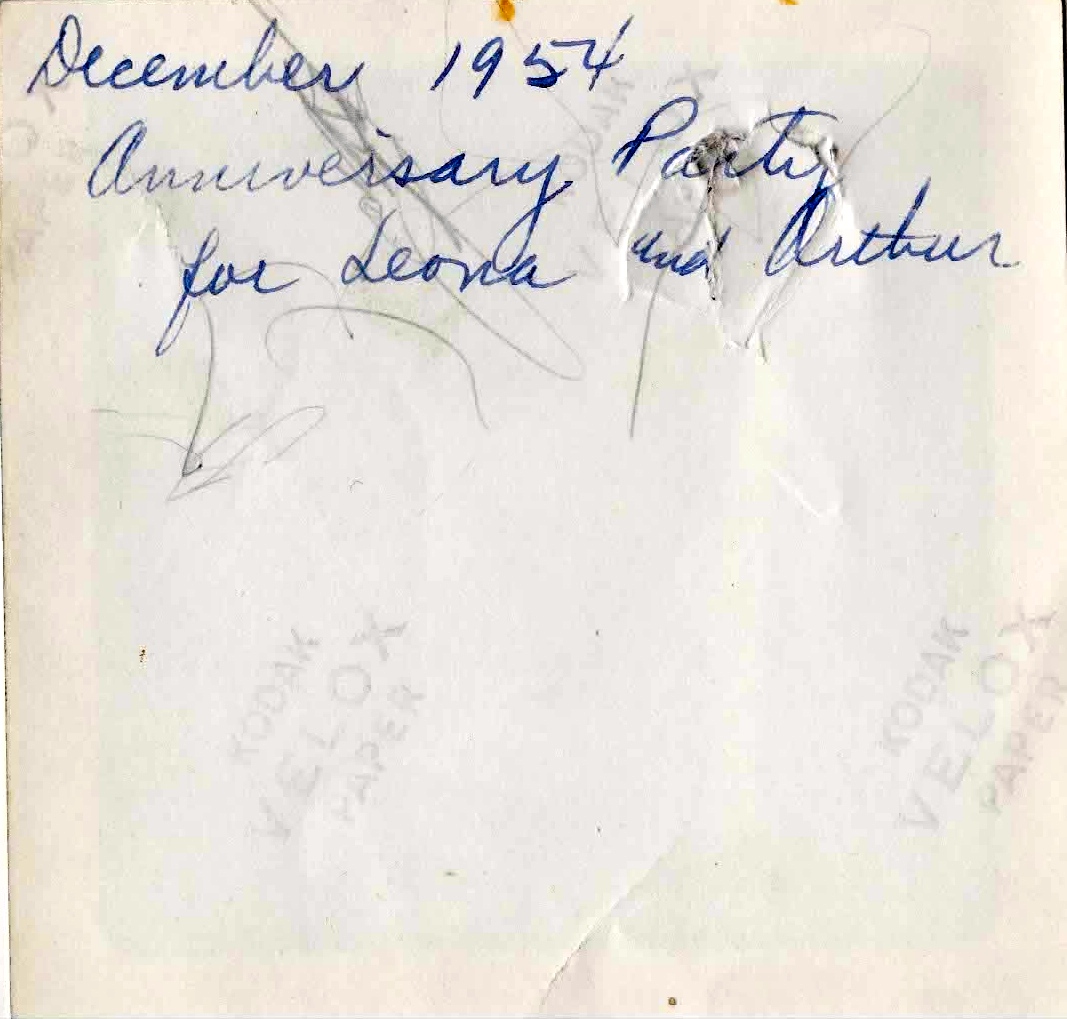 December 1954
Anniversary Party
for Leona and Arthur
KODAK
VELOX
PAPER
KODAK
VELOX
PAPER